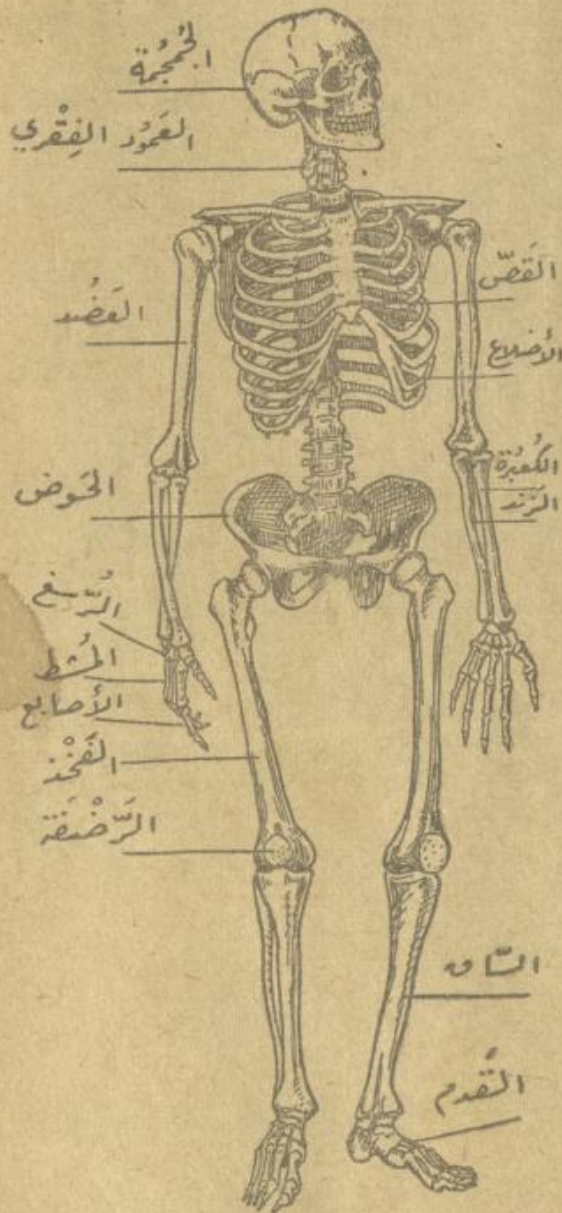 الجُمجُمة
العَمُود الفِقْري
القَصّ
العَضُد
الأضلاع
الكُعبُرة
الزَند
الحَوض
الرُسغ
المُشط
الأصابع
الفَخْذ
الرَّضْفَة
السّاق
القَدم